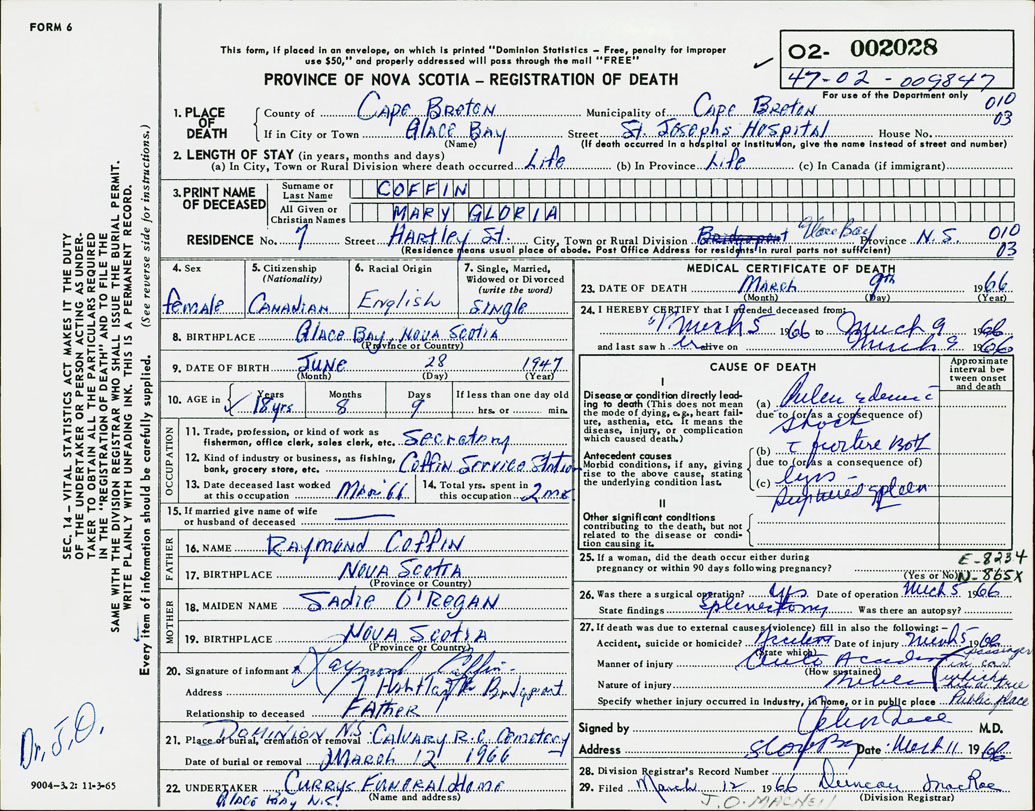 FORM 6
This form, if placed in an envelope, on which is printed "Dominion Statistics – Free, penalty for improper
use $50," and properly addressed will pass through the mail "FREE"
PROVINCE OF NOVA SCOTIA – REGISTRATION OF DEATH
02- 002028
47-02-009847
For use of the Department only
010
03
SEC. 14 – VITAL STATISTICS ACT MAKES IT THE DUTY
OF THE UNDERTAKER OR PERSON ACTING AS UNDER-
TAKER TO OBTAIN ALL THE PARTICULARS REQUIRED
IN THE "REGISTRATION OF DEATH" AND TO FILE THE
SAME WITH THE DIVISION REGISTRAR WHO SHALL ISSUE THE BURIAL PERMIT.
WRITE PLAINLY WITH UNFADING INK. THIS IS A PERMANENT RECORD.
Every item of information should be carefully supplied. (See reverse side for instructions.)
1. PLACE OF DEATH
County of Cape Breton Municipality of Cape Breton
If in City or Town Glace Bay Street St. Josephs Hospital House No.
(Name) (If death occurred in a hospital or institution, give the name instead of street and number)
2. LENGTH OF STAY (in years, months and days)
(a) In City, Town or Rural Division where death occurred Life (b) In Province Life (c) In Canada (if immigrant)
3. PRINT NAME OF DECEASED
Surname or Last Name COFFIN
All Given or Christian Names MARY GLORIA
RESIDENCE No. 7 Street Hartley St. City, Town or Rural Division Bridgeport Glace Bay Province N.S. 010
03
(Residence means usual place of abode. Post Office Address for residents in rural parts not sufficient)
4. Sex female
5. Citizenship (Nationality) Canadian
6. Racial Origin English
7. Single, Married, Widowed or Divorced (write the word) Single
8. BIRTHPLACE Glace Bay, Nova Scotia
(Province or Country)
9. DATE OF BIRTH June 28 1947
(Month) (Day) (Year)
10. AGE in Years 18 yrs. Months 8 Days 9 If less than one day old hrs. or min.
OCCUPATION
11. Trade, profession, or kind of work as fisherman, office clerk, sales clerk, etc. Secretary
12. Kind of industry or business, as fishing, bank, grocery store, etc. Coffin Service Station
13. Date deceased last worked at this occupation Mar '66
14. Total yrs. spent in this occupation 2 mo
15. If married give name of wife or husband of deceased
FATHER
16. NAME Raymond Coffin
17. BIRTHPLACE Nova Scotia
(Province or Country)
MOTHER
18. MAIDEN NAME Sadie O'Regan
19. BIRTHPLACE Nova Scotia
(Province or Country)
20. Signature of informant Raymond Coffin
Address 7 Hartley Bridgeport
Relationship to deceased Father
21. Place of burial, cremation or removal Dominion N.S. Calvary R.C. Cemetery
Date of burial or removal March 12 1966
22. UNDERTAKER Currys Funeral Home
Glace Bay N.S. (Name and address)
MEDICAL CERTIFICATE OF DEATH
23. DATE OF DEATH March 9th 1966
(Month) (Day) (Year)
24. I HEREBY CERTIFY that I attended deceased from:
March 5 1966 to March 9 1966
and last saw her alive on March 9 1966
CAUSE OF DEATH
Approximate interval between onset and death
I
Disease or condition directly leading to death (This does not mean the mode of dying, e.g., heart failure, asthenia, etc. It means the disease, injury, or complication which caused death.)
(a) Pulm edema
due to (or as a consequence of)
shock
Antecedent causes
Morbid conditions, if any, giving rise to the above cause, stating the underlying condition last.
(b) Both
due to (or as a consequence of)
(c) legs
Ruptured spleen
II
Other significant conditions
contributing to the death, but not related to the disease or condition causing it.
25. If a woman, did the death occur either during pregnancy or within 90 days following pregnancy?
(Yes or No)
E-8234
N-865X
26. Was there a surgical operation? yes Date of operation March 5 1966
State findings Splenectomy Was there an autopsy?
27. If death was due to external causes (violence) fill in also the following:–
Accident, suicide or homicide? Accident Date of injury March 5 1966
(State which)
Manner of injury Auto Accident passenger in car which
(How sustained)
Nature of injury
Specify whether injury occurred in Industry, in home, or in public place Public place
Signed by M.D.
Address Glace Bay Date: March 11 1966
28. Division Registrar's Record Number
29. Filed March 12 1966 Duncan MacRae
(Division Registrar)
J.O. MACNEIL
Dr. J.O.
9004–3.2: 11-3-65